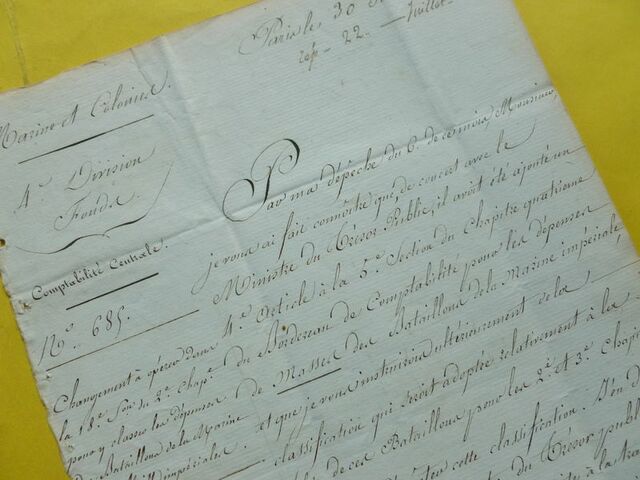 Paris le 30
rép. 22 Juillet
Marine et Colonies.
4e Division
Fonds
Comptabilité Centrale.
No. 685.
Changement à opérer dans
la 18e Son du 2e Chapre
pour y classer les dépenses
des Bataillons de la Marine
impériale.
Par ma dépêche du 6. de ce mois, Monsieur,
je vous ai fait connoître que, de concert avec le
Ministre du Trésor Public, il avoit été ajouté un
4e Article à la 5e Section du Chapitre quatrième
du Bordereau de Comptabilité pour les dépenses
de Masses des Bataillons de la Marine impériale,
et que je vous instruirois ultérieurement de la
classification qui seroit adoptée relativement à la
de ces Bataillons pour les 2e et 3e Chap
cette classification. J'en
du Trésor public
à la